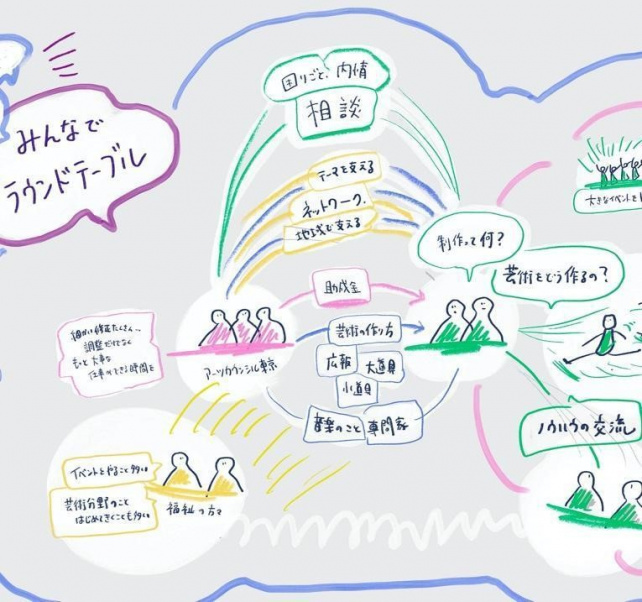 みんなで
ラウンドテーブル
困りごと、内情
相談
テーマを支える
ネットワーク、
地域で支える
制作って何?
芸術をどう作るの?
助成金
芸術の作り方
広報
大道具
小道具
音楽のこと
専門家
アーツカウンシル東京
細かい修正たくさん…
調整だけでなく
もっと大事な
仕事のできる時間を
イベントをやること多い
芸術分野のこと
はじめてきくことも多い
福祉の方々
ノウハウの交流
大きなイベントを